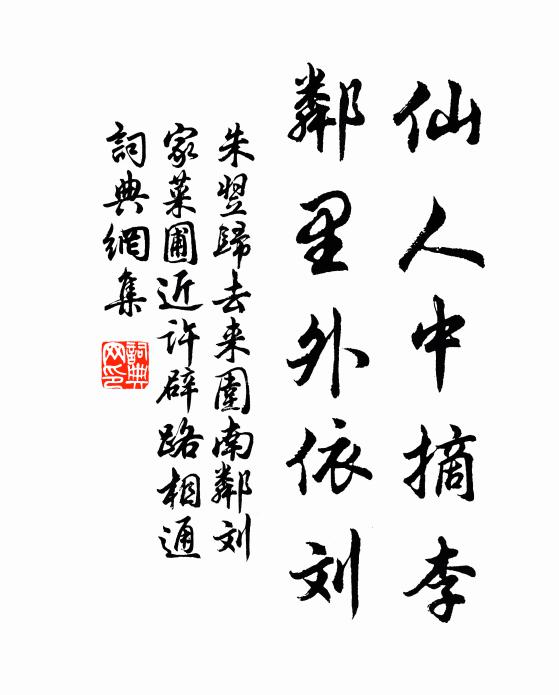 仙人中摘李
鄰里外依刘
朱翌歸去来圃南鄰刘
家菜圃近許辟路相通
詞典網集
詞典
网印